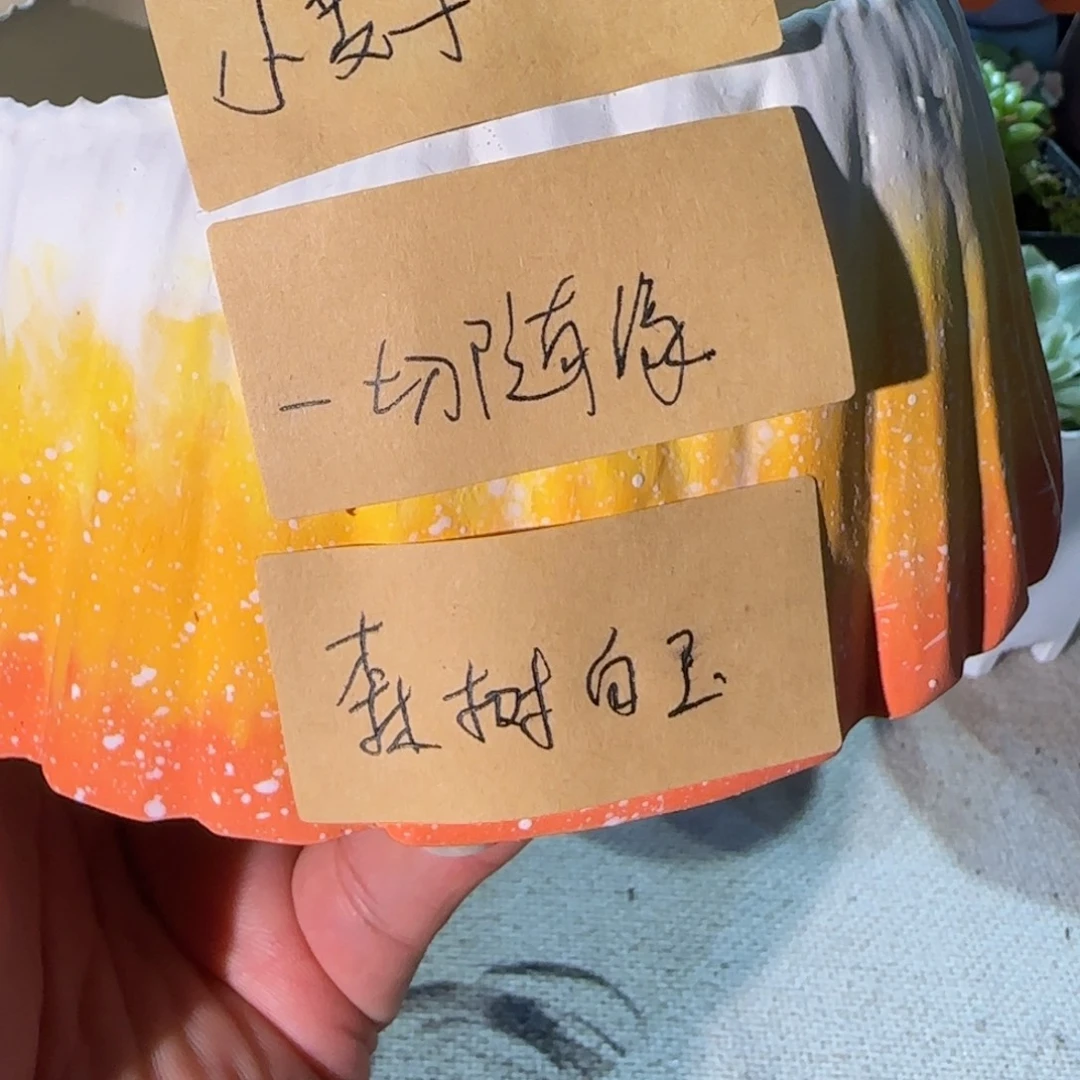 小麦子
一切随缘
森树白玉